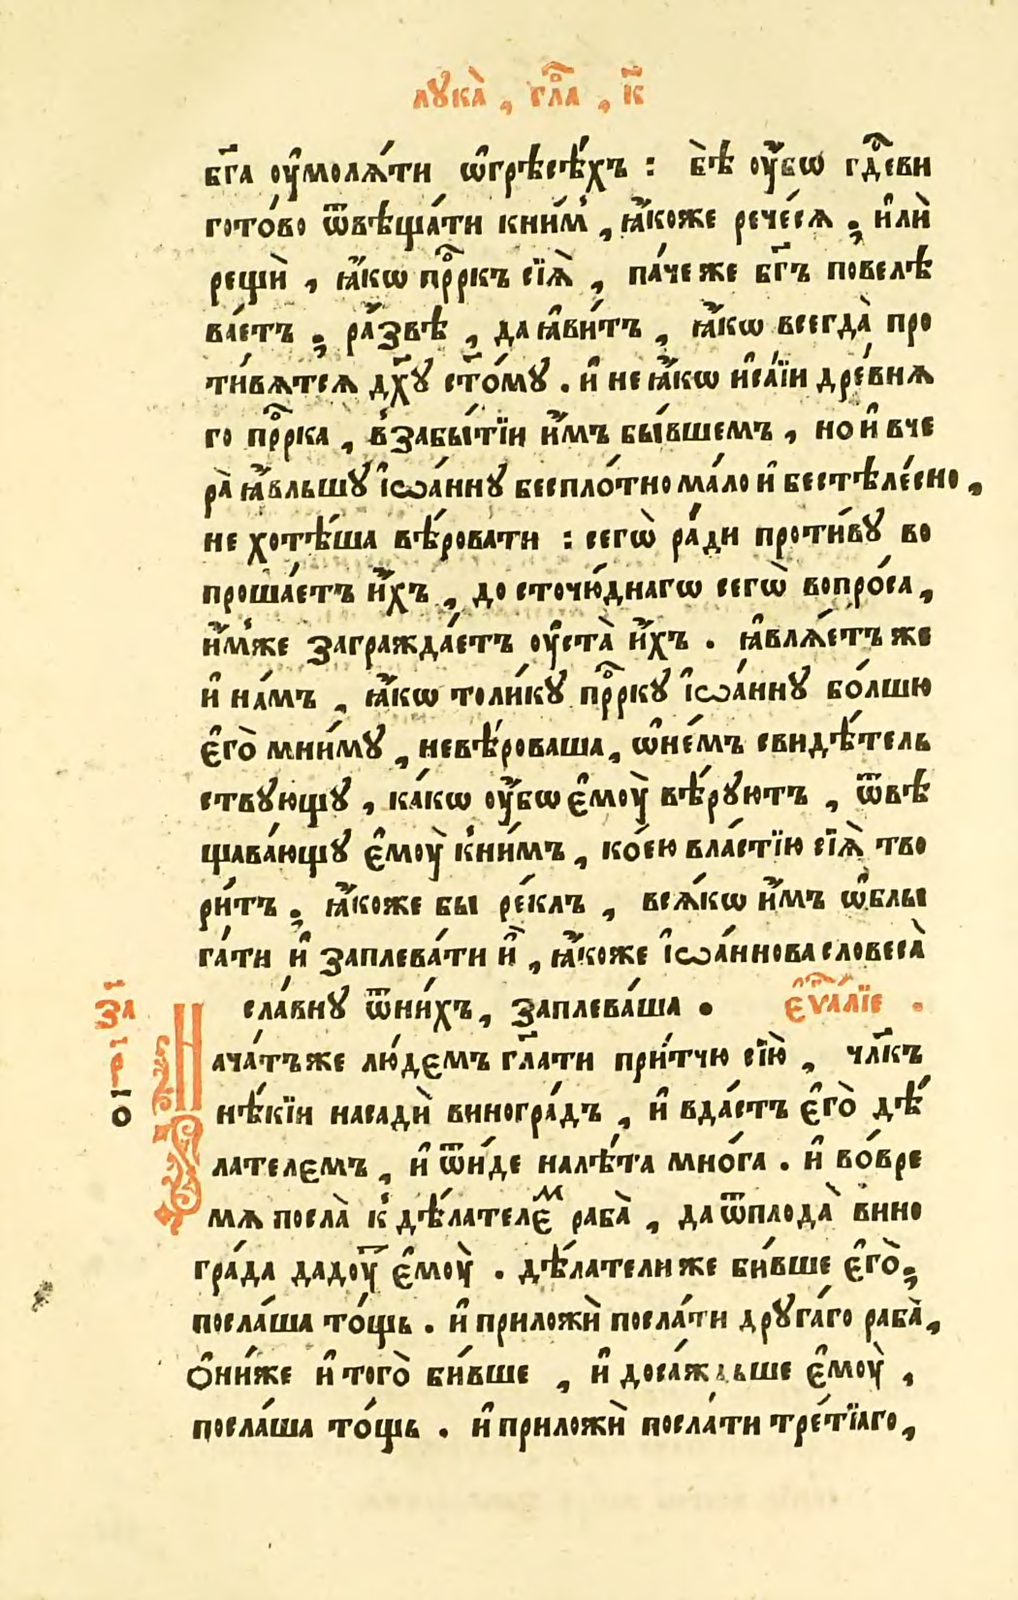 лꙋка̀, гл҃а, к҃
бг҃а ᲂу҆моля́ти ѡ҆грѣсѣ́хъ : бѣ̀ ᲂу҆́бѡ гдⷭ҇еви
гото́во ѿвѣща́ти кни́м̾, ꙗ҆́коже рече́ся, и҆лѝ
рещѝ, ꙗ҆́кѡ прⷪ҇ркъ сїѧ̀, па́че же бг҃ъ повелѣ
ва́етъ, ра́звѣ, да ꙗ҆ви́тъ, ꙗ҆́кѡ всегда̀ про
ти́вятся дх҃ꙋ ст҃о́мꙋ. и҆ не ꙗ҆́кѡ и҆са́їи дре́вня
го прⷪ҇рка, в̾забы́тїи и҆́мъ бы́вшемъ, но и҆ вче
ра̀ ꙗ҆́вльшꙋ і҆ѡа́ннꙋ бесплотнома́ло и҆ бестѣле́сно,
не хотѣ́ша вѣ́ровати : сегѡ̀ ра́ди проти́вꙋ во
проша́етъ и҆́хъ, до сточю́днагѡ сегѡ̀ вопро́са,
и҆́м̾же загражда́етъ ᲂу҆ста̀ и҆́хъ. ꙗ҆вля́етъ же
и҆ на́мъ, ꙗ҆́кѡ толи́кꙋ прⷪ҇ркꙋ і҆ѡа́ннꙋ бо́лшю
є҆го̀ мни́мꙋ, невѣ́роваша, ѡ҆не́мъ свидѣ́тель
ствꙋющꙋ, ка́кѡ ᲂу҆́бѡ є҆мᲂу̀ вѣ́рꙋютъ, ѿвѣ
щава́ющꙋ є҆мᲂу̀ к̾ни́мъ, ко́ею вла́стїю сїѧ̀ тво
ри́тъ, ꙗ҆́коже бы ре́клъ, вся́кѡ и҆́мъ ѡ҆блы
га́ти и҆̀ заплева́ти и҆̀, ꙗ҆́коже і҆ѡа́ннова словеса̀
сла́внꙋ ѿни́хъ, заплева́ша. є҆ѵⷢ҇а́лїе.
за҃ р҃і о҃
Нача́тъже лю́демъ гл҃ати при́тчю сїю̀, чл҃къ
нѣ́кїи насадѝ виногра́дъ, и҆ вда́стъ є҆го̀ дѣ́
лателемъ, и҆ ѿи́де налѣ́та мно́га. и҆ во́вре
мя посла̀ к̾ дѣ́лателеⷨ раба̀, да ѿплода̀ вино
гра́да дадᲂу́т є҆мᲂу̀. дѣ́лателиже би́вше є҆го̀,
посла́ша то́щь. и҆ приложѝ посла́ти дрꙋга́го раба̀,
ѻ҆ни́же и҆ того̀ би́вше, и҆ доса́ждьше є҆мᲂу̀,
посла́ша то́щь. и҆ приложѝ посла́ти тре́тїаго,